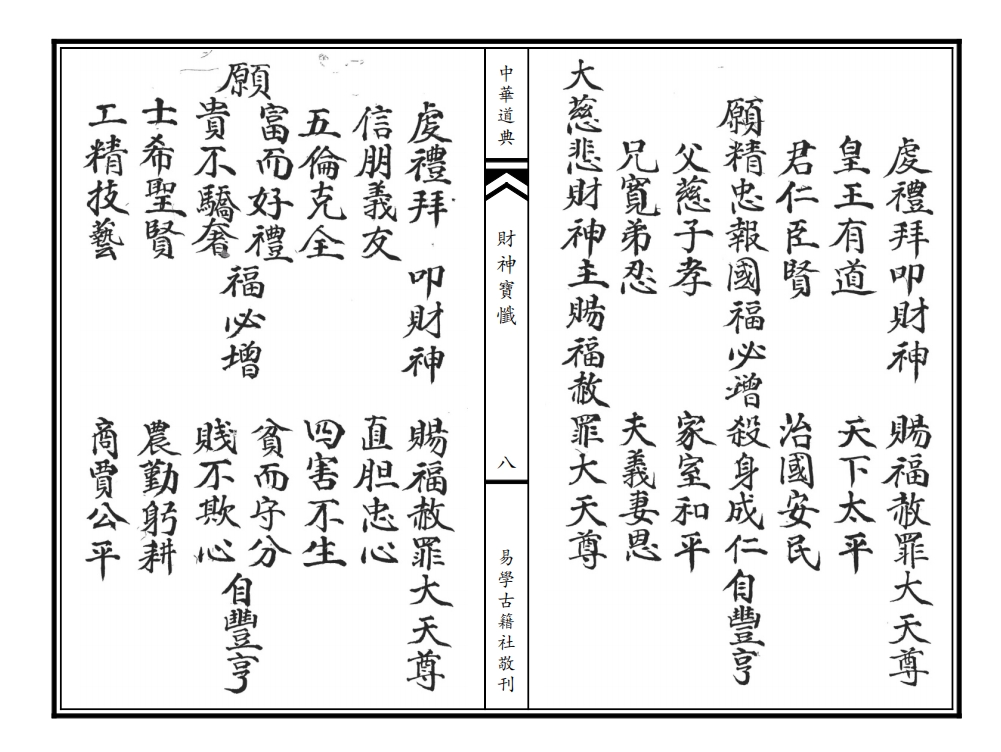 虔禮拜叩財神 賜福赦罪大天尊
皇王有道 天下太平
君仁臣賢 治國安民
願精忠報國福必增 殺身成仁自豐亨
父慈子孝 家室和平
兄寬弟忍 夫義妻恩
大慈悲財神主賜福赦罪大天尊
中華道典 財神寶懺 八 易學古籍社敬刊
虔禮拜 叩財神 賜福赦罪大天尊
信朋義友 直胆忠心
五倫克全 四害不生
富而好禮 貧而守分
願 福必增 自豐亨
貴不驕奢 賤不欺心
士希聖賢 農勤躬耕
工精技藝 商賈公平